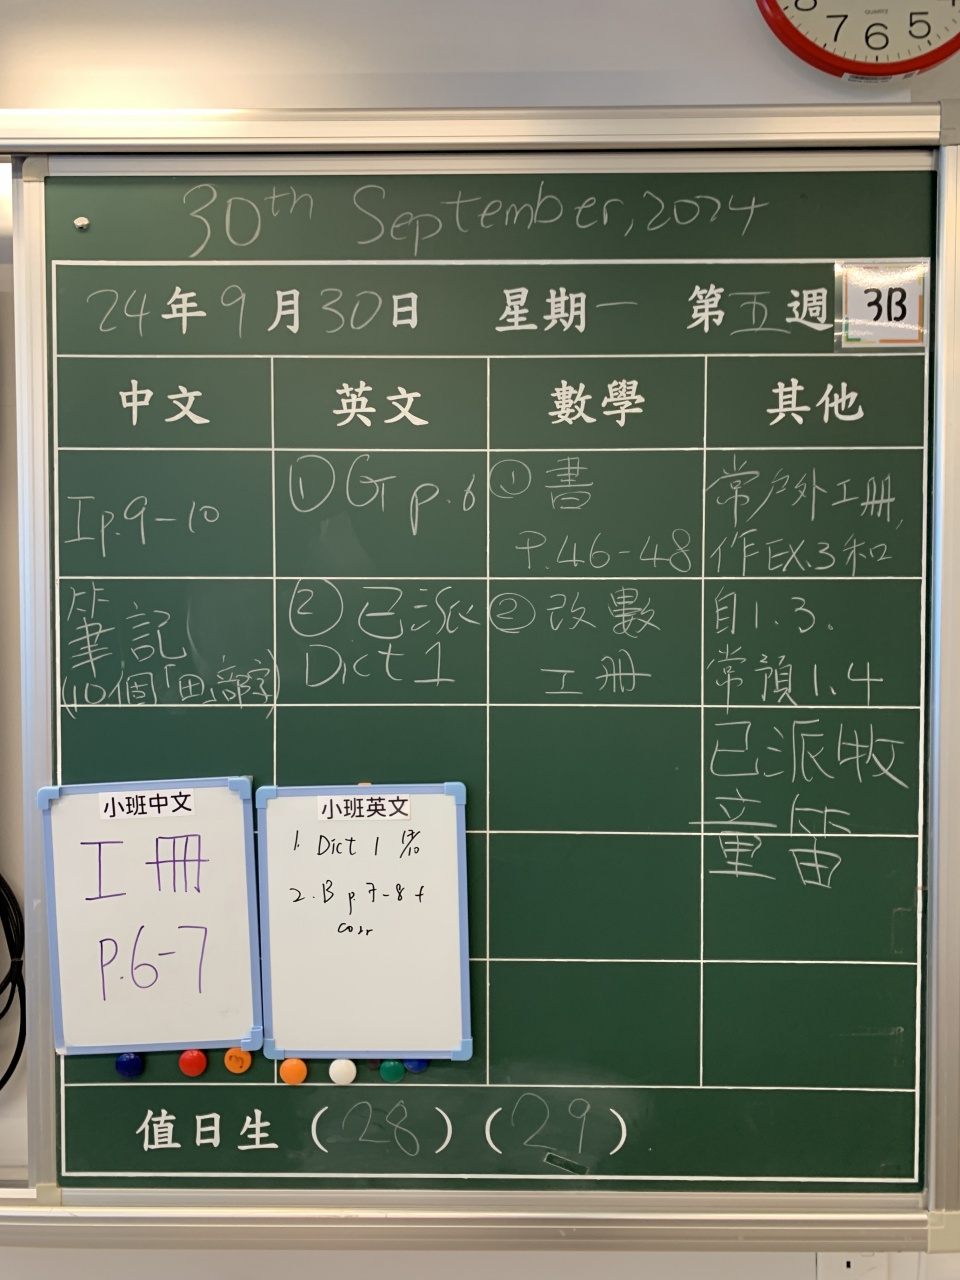 QUARTZ
8 7 6 5
30th September, 2024
24年9月30日 星期一 第五週 3B
中文 英文 數學 其他
Ip.9-10
筆記
(10個「田」部字)
① G p.6
② 已派
Dict 1
① 書
P.46-48
② 改數
工冊
常戶外工冊,
作EX.3和
自1.3.
常預1.4
已派收
童笛
小班中文
工冊
P.6-7
小班英文
1. Dict 1
2. B p.7-8 +
corr
值日生 (28) (29)